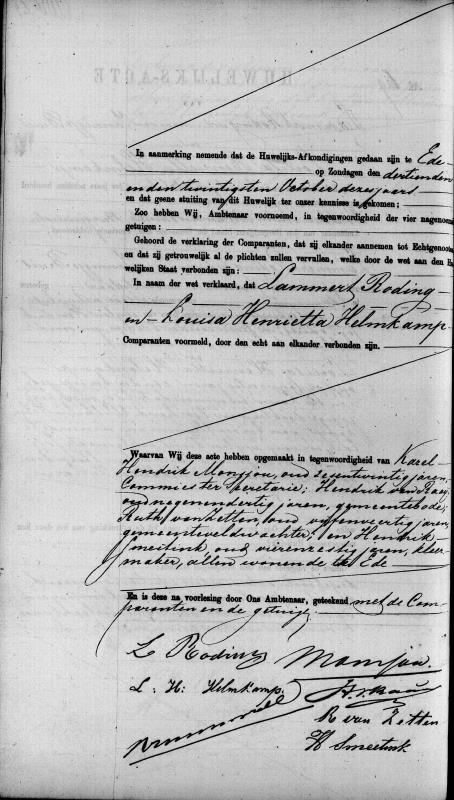 In aanmerking nemende dat de Huwelijks-Afkondigingen gedaan zijn te Ede
op Zondagen den dertienden
en den twintigsten October dezes jaars
en dat geene stuiting van dit Huwelijk ter onzer kennisse is gekomen;
Zoo hebben Wij, Ambtenaar voornoemd, in tegenwoordigheid der vier nagenoemde
getuigen:
Gehoord de verklaring der Comparanten, dat zij elkander aannemen tot Echtgenooten
en dat zij getrouwelijk al de plichten zullen vervullen, welke door de wet aan den
welijken Staat verbonden zijn:
In naam der wet verklaard, dat Lammert Roding
en Louisa Henrietta Helmkamp
Comparanten voormeld, door den echt aan elkander verbonden zijn.
Waarvan Wij deze acte hebben opgemaakt in tegenwoordigheid van Karel
Hendrik Monjou, oud zesentwintig jaren,
Commies ter Secretarie; Hendrik van Raaij,
oud negenendertig jaren, gemeentebode;
Ruth van Zetten, oud vijfenveertig jaren,
gemeenteveldwachter, en Hendrik
Smeitink, oud vierenzestig jaren, kleer
maker, allen wonende te Ede
En is deze na voorlezing door Ons Ambtenaar, geteekend met de Com-
paranten en de getuigen.
L Roding Monjou.
L: H: Helmkamp. H. v. Raaij
R van Zetten
H Smeetink